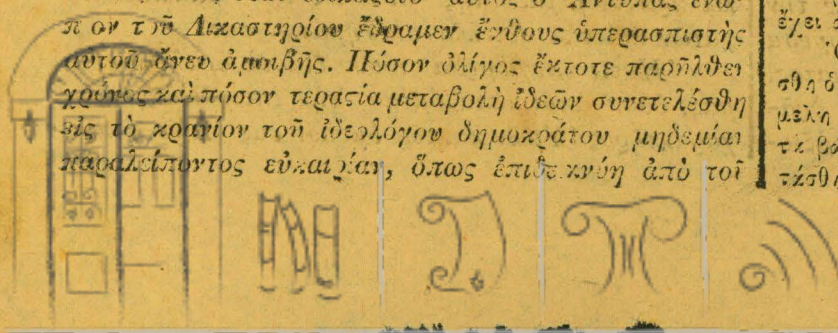 πιον τοῦ Δικαστηρίου ἔδραμεν ἔνθους ὑπερασπιστὴς
αὐτοῦ ἄνευ ἀμοιβῆς. Πόσον ὀλίγος ἔκτοτε παρῆλθεν
χρόνος καὶ πόσον τεραστία μεταβολὴ ἰδεῶν συνετελέσθη
εἰς τὸ κρανίον τοῦ ἰδεολόγου δημοκράτου μηδεμίαν
παραλείποντος εὐκαιρίαν, ὅπως ἐπιδεικνύη ἀπὸ τοῦ
ἔχει
σθη ὁ
μελη
τὰ